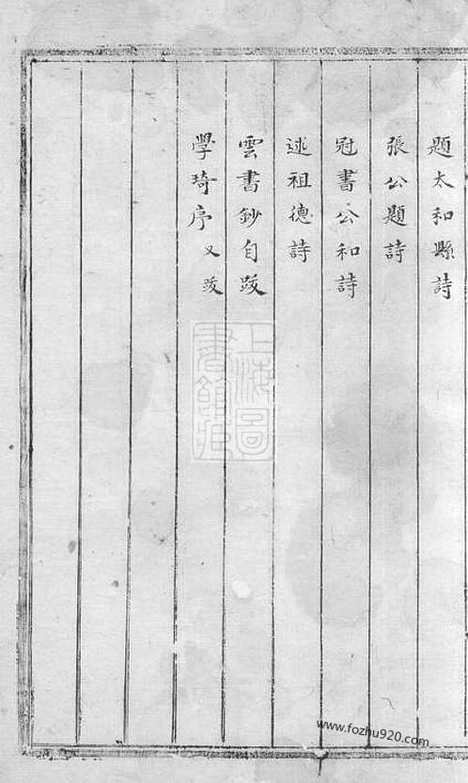 題太和縣詩
張公題詩
冠書公和詩
述祖德詩
雲書鈔自跋
學琦序 又跋
上海圖書館藏
www.fozhu920.com